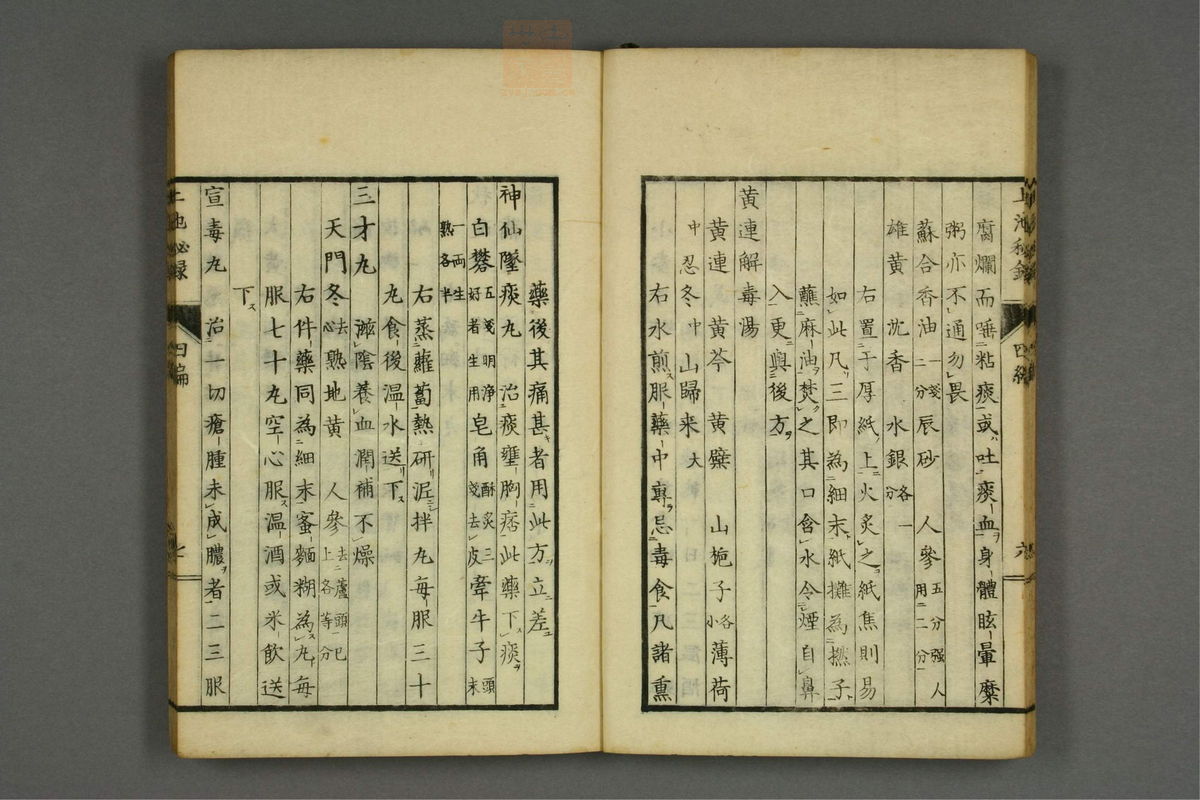 腐爛而唾粘痰或ハ吐痰血身體眩暈糜
粥亦不通勿畏
蘇合香油一戔二分辰砂 人參五分强人用二分
雄黄 沈香 水銀各一分
右置于厚紙上火炙之紙焦則易
如此凡三即為細末紙攤為撚子
蘸麻油焚之其口含水令煙自鼻
入更與後方
黄連解毒湯
黄連 黄芩 黄蘗 山梔子各小薄荷
中忍冬中山歸来大
右水煎服藥中專忌毒食凡諸熏
藥後其痛甚者用此方立差
神仙墜痰丸 治痰壅胸痞此藥下痰
白礬五戔明淨好者生用皂角酥炙三戔去皮牽牛子頭末
一両生熟各半
右蒸蘿蔔熱研泥拌丸每服三十
丸食後温水送下
三才丸 滋陰養血潤補不燥
天門冬去心熟地黄 人參去蘆頭已上各等分
右件藥同為細末蜜麵糊為丸每
服七十丸空心服温酒或米飲送
下
宣毒丸 治一切瘡腫未成膿者二三服
上池秘録 四編 七